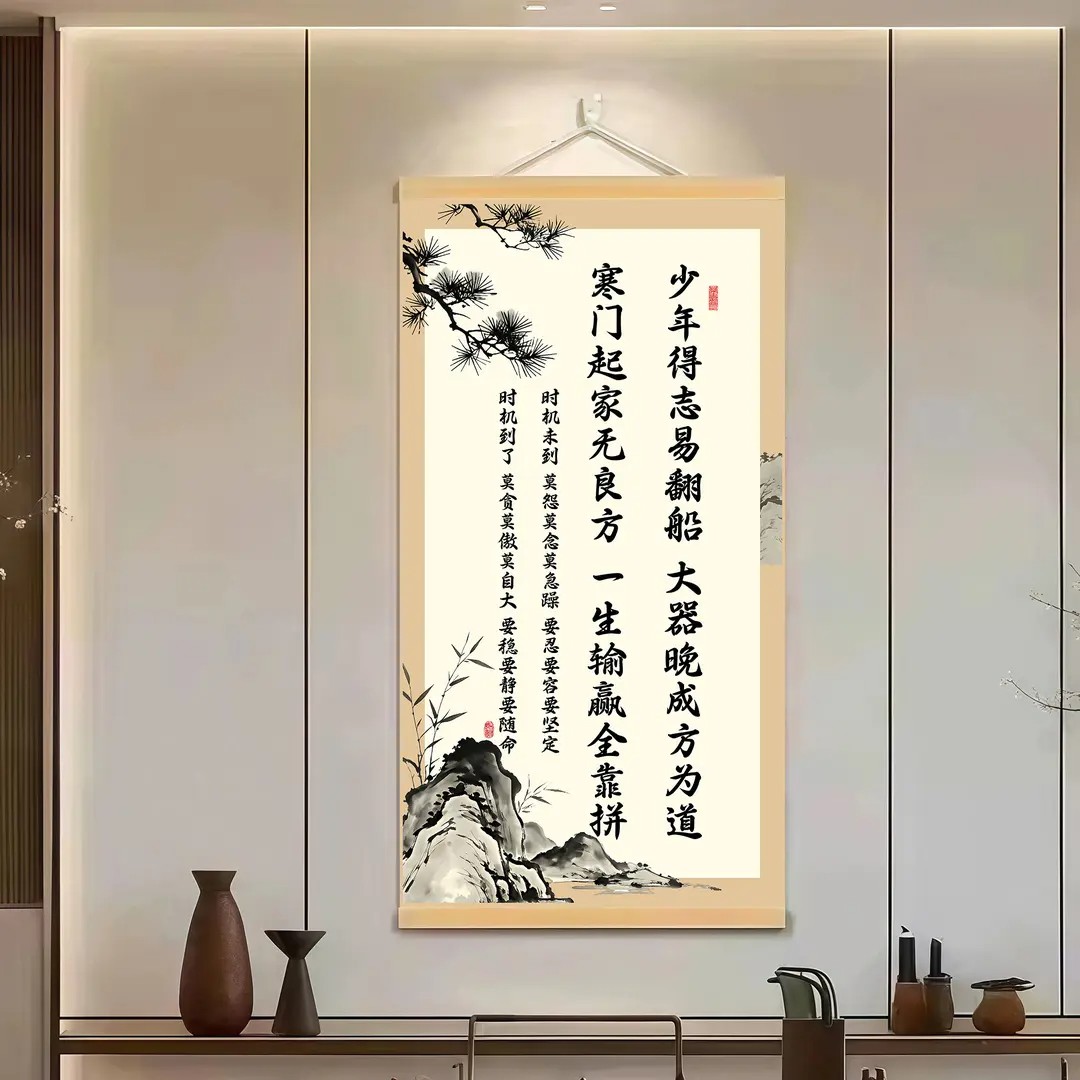 少年得志易翻船 大器晚成方为道
寒门起家无良方 一生输赢全靠拼
时机未到 莫怨莫念莫急躁 要忍要容要坚定
时机到了 莫贪莫傲莫自大 要稳要静要随命